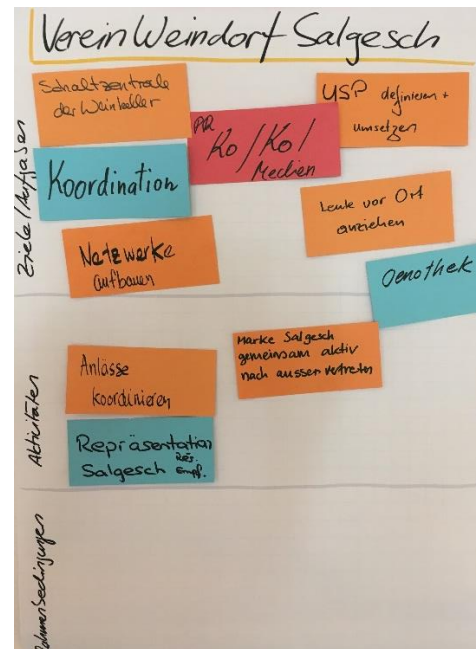 Verein Weindorf Salgesch
Ziele/Aufgaben
Schaltzentrale
der Weinkeller
PR
Ko/Ko/
Medien
USP definieren +
umsetzen
Koordination
Leute vor Ort
anziehen
Netzwerke
aufbauen
Oenothek
Aktivitäten
Anlässe
koordinieren
Marke Salgesch
gemeinsam aktiv
nach aussen vertreten
Repräsentation
Salgesch
Empf.
Rahmenbedingungen